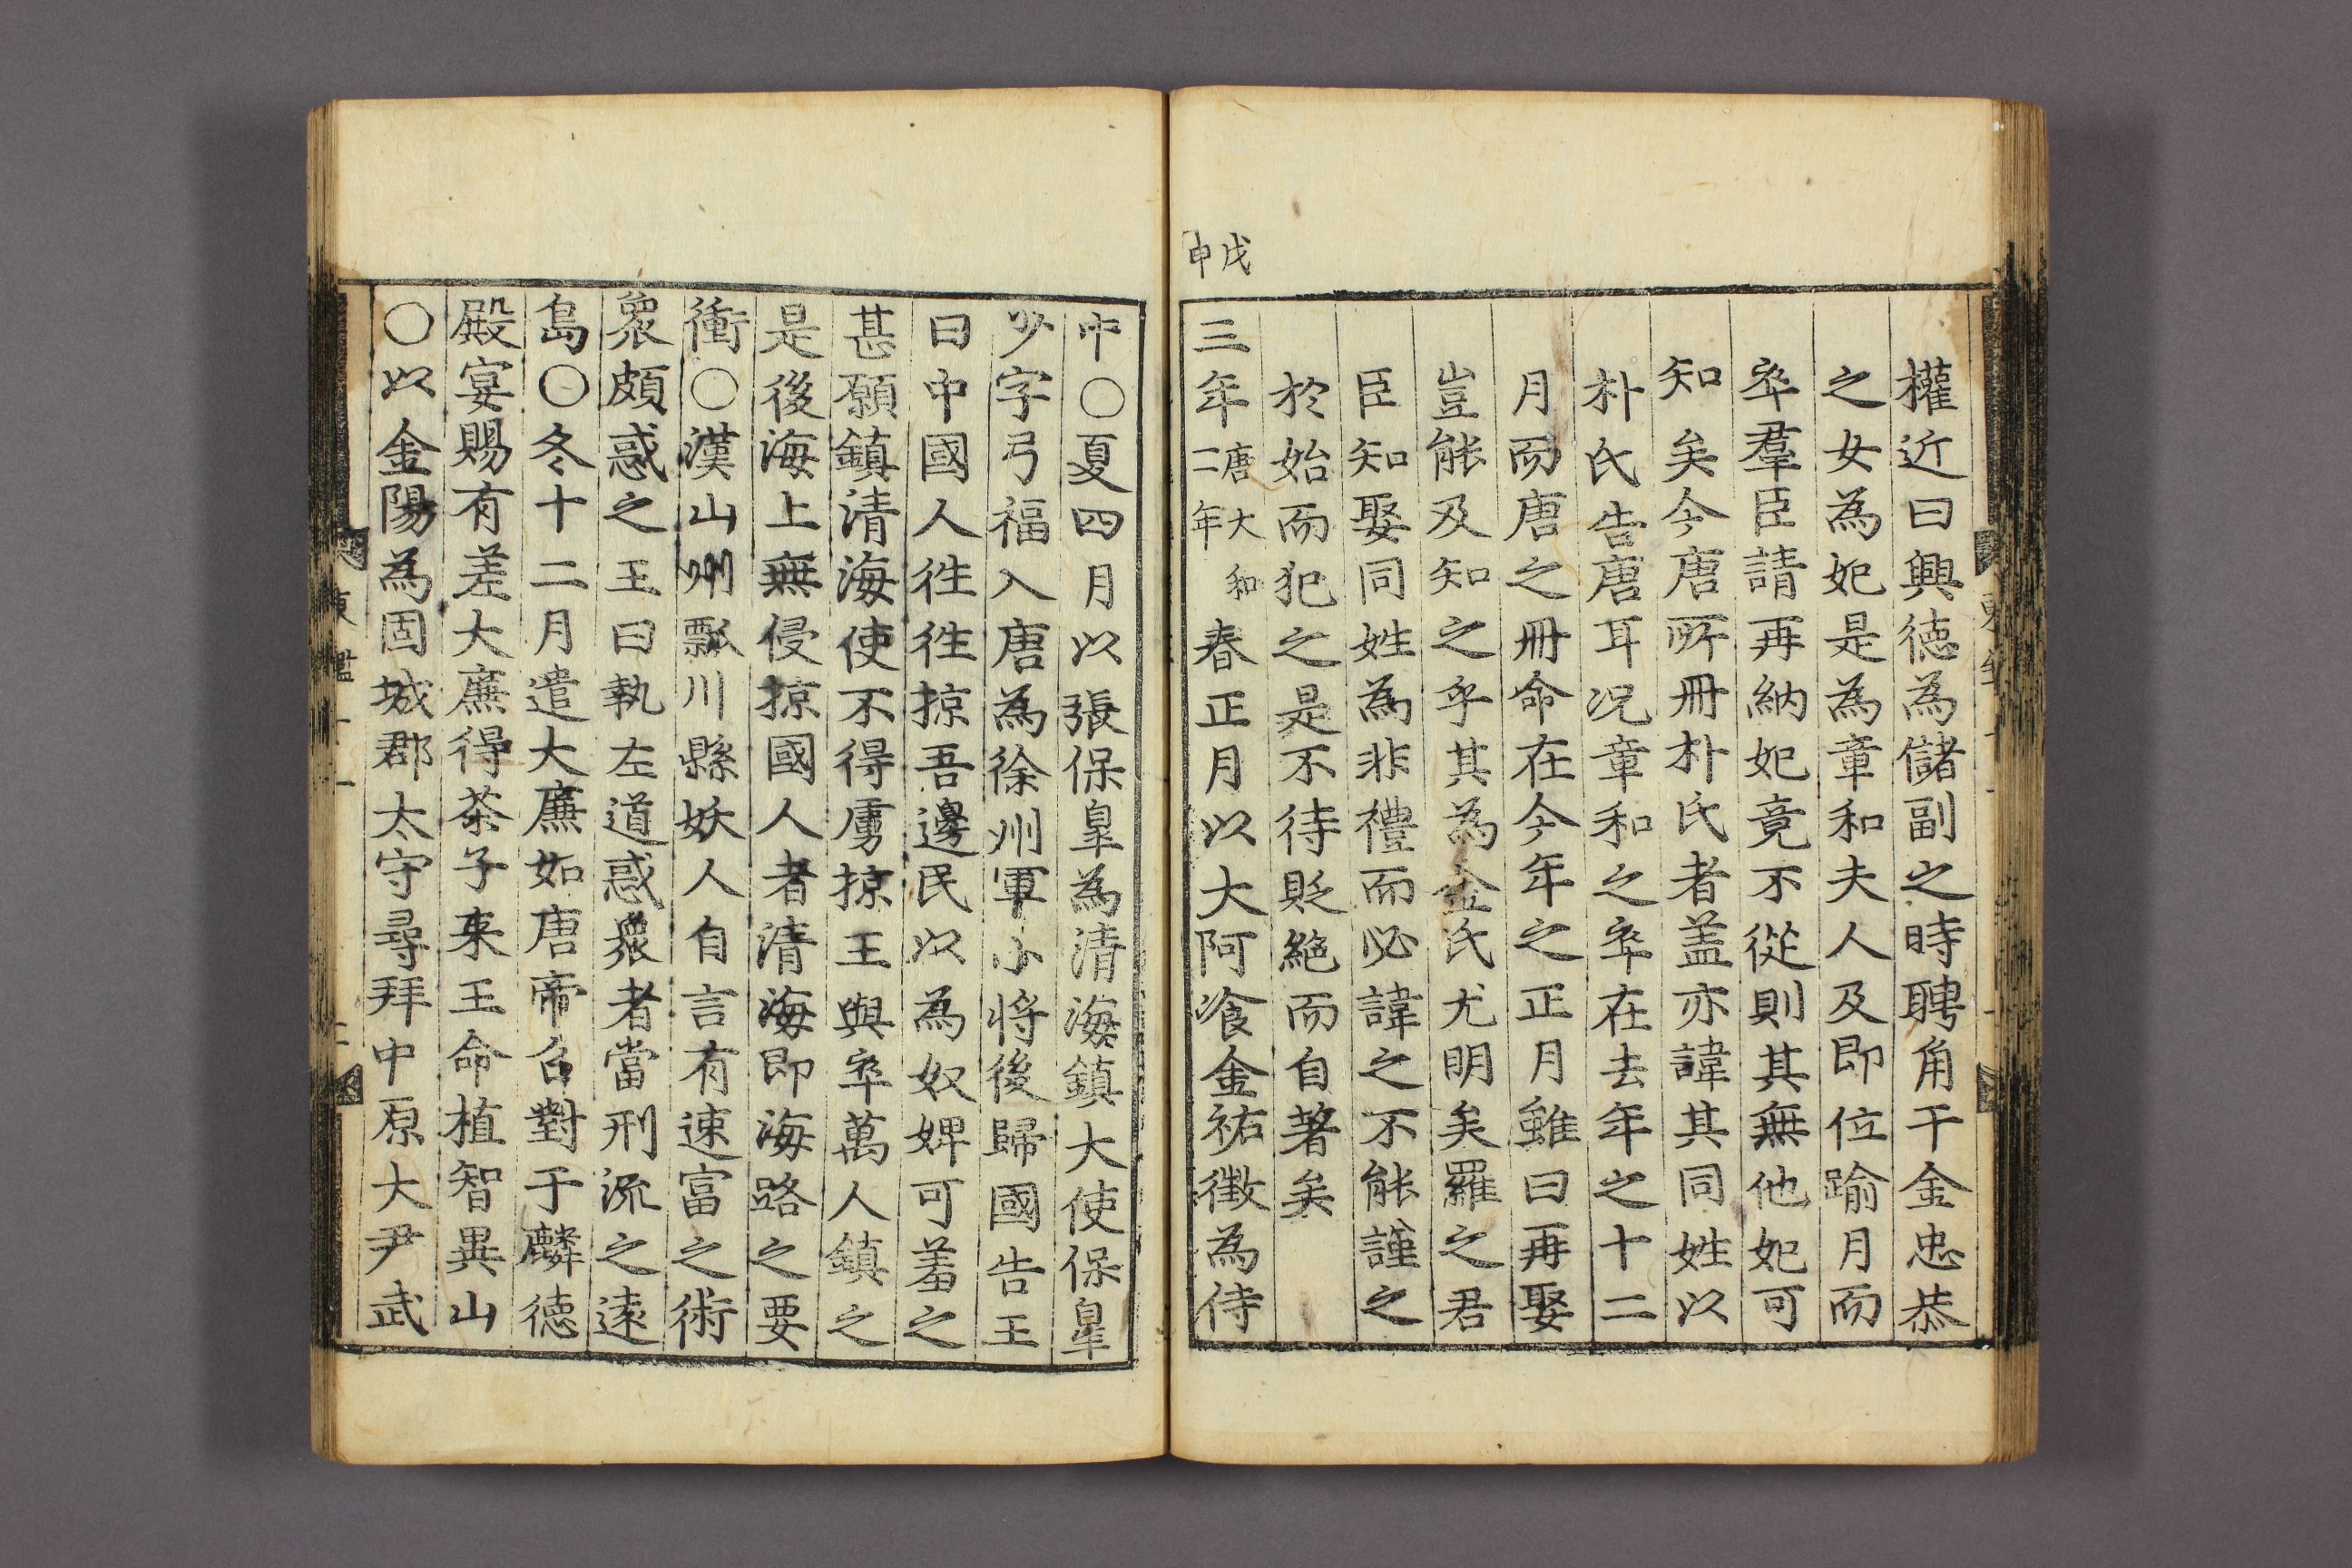 權近曰興德為儲副之時聘角干金忠恭
之女為妃是為章和夫人及即位踰月而
卒羣臣請再納妃竟不從則其無他妃可
知矣今唐所冊朴氏者盖亦諱其同姓以
朴氏告唐耳况章和之卒在去年之十二
月而唐之冊命在今年之正月雖曰再娶
豈能及知之乎其為金氏尤明矣羅之君
臣知娶同姓為非禮而必諱之不能謹之
於始而犯之是不待貶絕而自著矣
戊申
三年唐大和二年春正月以大阿飡金祐徵為侍
中○夏四月以張保皐為清海鎮大使保皐
少字弓福入唐為徐州軍小將後歸國告王
曰中國人徃徃掠吾邊民以為奴婢可羞之
甚願鎮清海使不得虜掠王與卒萬人鎮之
是後海上無侵掠國人者清海即海路之要
衝○漢山州瓢川縣妖人自言有速富之術
衆頗惑之王曰執左道惑衆者當刑流之遠
島○冬十二月遣大廉如唐帝召對于麟德
殿宴賜有差大廉得茶子来王命植智異山
○以金陽為固城郡太守尋拜中原大尹武
東鑑十一